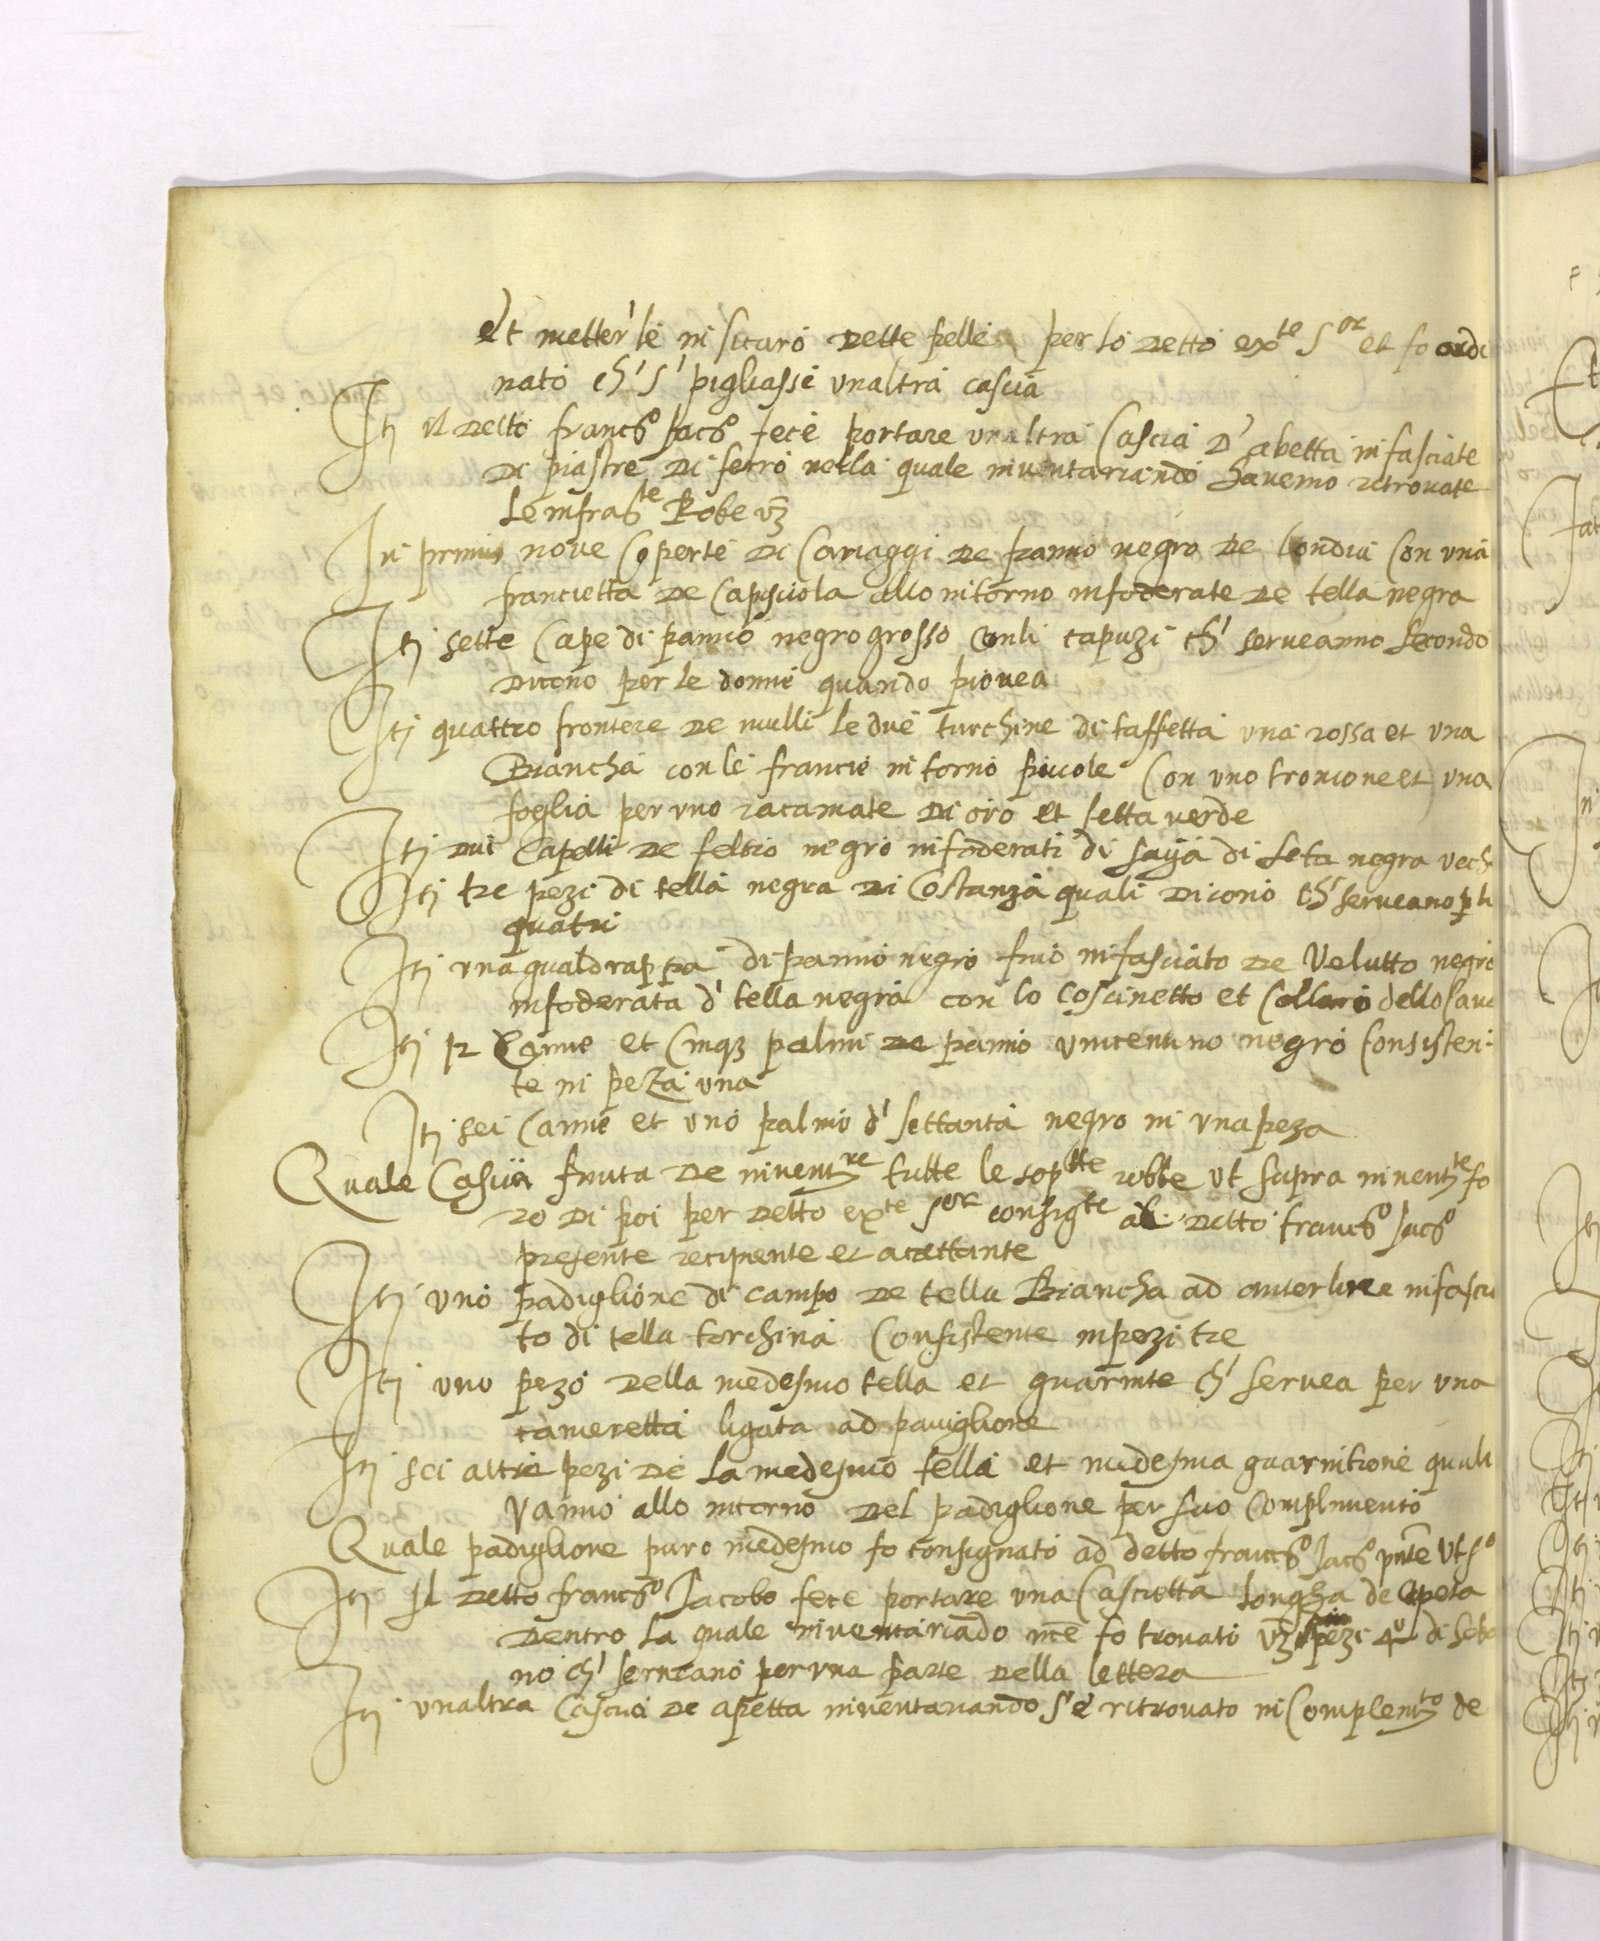 et metter le in sicuro dette pelle per lo detto ex.te S.or et fo ordi
nato ch' s' pigliasse unaltra cascia
Itj il detto franc.o Jac.o fece portare unaltra Cascia d'abetta infasciate
di piastre di ferro nella quale inventariando havemo retrovate
le infras.te Robe vz
In primis nove Coperte di Cariaggi de panno negro de londra Con una
francietta de Capisciola allo intorno infoderate de tella negra
Itj sette Cape di panno negro grosso conli capuzi ch' serveanno secondo
diceno per le donne quando piovea
Itj quattro frontere de mulli le due turchine di taffetta una rossa et una
Biancha con le francie intorno piccole Con uno troncone et una
foglia per uno racamate di oro et setta verde
Itj dui Capelli de feltro negro infoderati di saija di seta negra vech
Itj tre pezi di tella negra di Costanza quali dicono ch' serveano p li
quatri
Itj una qualdrappa di panno negro fino infasciato de Velutto negro
infoderata d' tella negra con lo coscinetto et Collaro dello cava
Itj 12 Canne et cinq3 palmi de panno vincentino negro Consisten-
te in peza una
Itj sei Canne et uno palmo d' settanta negro in una peza
Quale Cascia finuta de inventr.re tutte le sop.tte robbe ut supra invent.te fo
ro di poi per detto ex.te s.or consig.te al detto franc.o Jac.o
presente recipiente et acettante
Itj uno padiglione di campo de tella Biancha ad interlice infascia
to di tella torchina Consistente in pezi tre
Itj uno pezo della medesmo tella et guarnite ch' servea per una
cameretta ligata ad paviglione
Itj sei altre pezi de la medesmo tella et medesma guarnitione quali
vanno allo intorno del padiglione per suo complimento
Quale padiglione puro medesmo fo consignato ad detto franc.o Jac.o pnte ut s.a
Itj Il detto franc.o Jacobo fece portare una Cascietta longha de apeta
dentro la quale inventariado nce fo trovati vz pezi 4.o di seba
no ch' serveano per una parte della lettera
Itj unaltra Cascia de apetta inventariando s'è ritrovato in Complem.to de